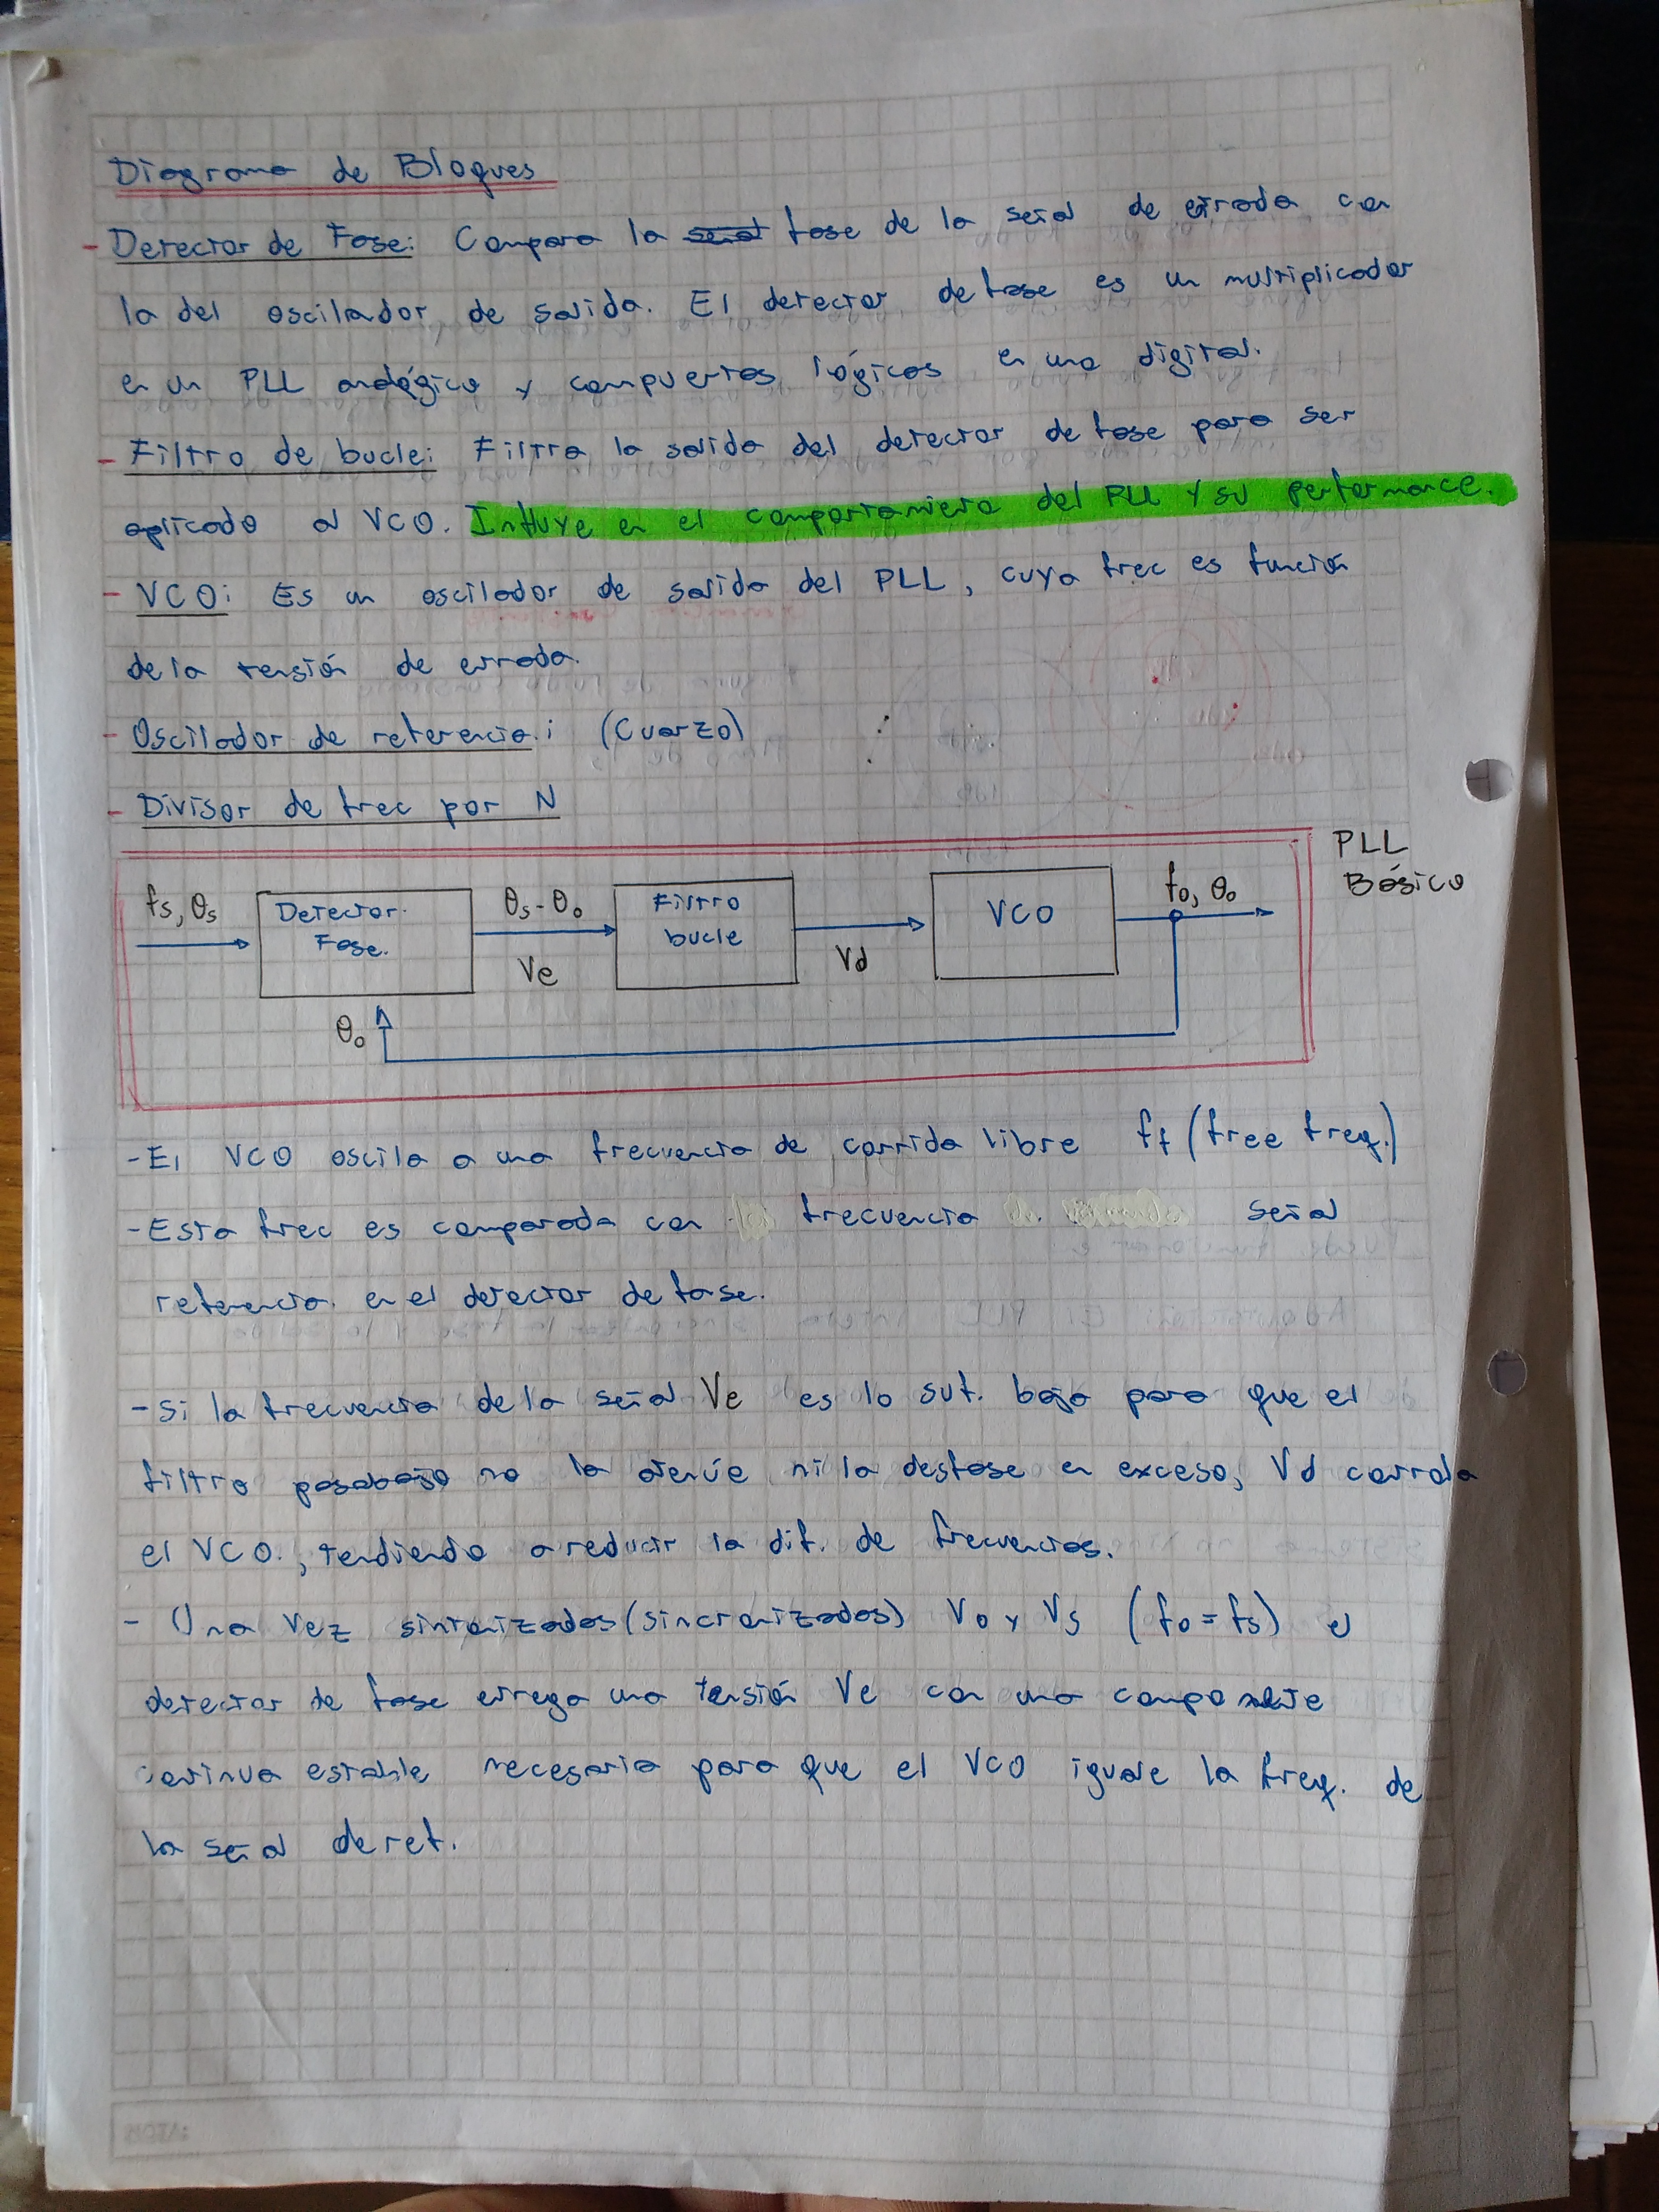 Diagrama de Bloques
- Detector de Fase: Compara la señal fase de la señal de entrada con
la del oscilador de salida. El detector de fase es un multiplicador
en un PLL analógico y compuertas lógicas en uno digital.
- Filtro de bucle: Filtra la salida del detector de fase para ser
aplicado al VCO. Influye en el comportamiento del PLL y su performance.
- VCO: Es un oscilador de salida del PLL, cuya frec es función
de la tensión de entrada.
- Oscilador de referencia: (Cuarzo)
- Divisor de frec por N
PLL
Básico
fs, θs
Detector
Fase.
θs - θo
Ve
Filtro
bucle
Vd
VCO
fo, θo
θo
- El VCO oscila a una frecuencia de corrida libre ff (free freq.)
- Esta frec es comparada con la frecuencia señal
referencia en el detector de fase.
- Si la frecuencia de la señal Ve es lo suf. baja para que el
filtro pasabajo no la atenúe ni la desfase en exceso, Vd controla
el VCO, tendiendo a reducir la dif. de frecuencias.
- Una vez sintonizados (sincronizados) Vo y Vs (fo = fs) el
detector de fase entrega una tensión Ve con una componente
continua estable necesaria para que el VCO iguale la freq. de
la señal de ref.